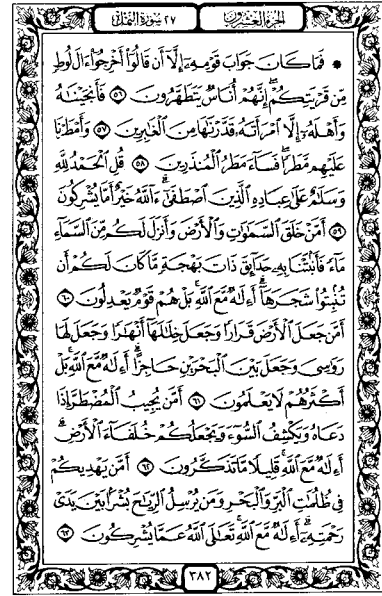 الجزء العشرون ٢٧ سورة النمل
فَمَا كَانَ جَوَابَ قَوْمِهِۦٓ إِلَّآ أَن قَالُوٓا۟ أَخْرِجُوٓا۟ ءَالَ لُوطٍ
مِّن قَرْيَتِكُمْ ۖ إِنَّهُمْ أُنَاسٌ يَتَطَهَّرُونَ ٥٦ فَأَنجَيْنَٰهُ
وَأَهْلَهُۥٓ إِلَّا ٱمْرَأَتَهُۥ قَدَّرْنَٰهَا مِنَ ٱلْغَٰبِرِينَ ٥٧ وَأَمْطَرْنَا
عَلَيْهِم مَّطَرًا ۖ فَسَآءَ مَطَرُ ٱلْمُنذَرِينَ ٥٨ قُلِ ٱلْحَمْدُ لِلَّهِ
وَسَلَٰمٌ عَلَىٰ عِبَادِهِ ٱلَّذِينَ ٱصْطَفَىٰٓ ۗ ءَآللَّهُ خَيْرٌ أَمَّا يُشْرِكُونَ
٥٩ أَمَّنْ خَلَقَ ٱلسَّمَٰوَٰتِ وَٱلْأَرْضَ وَأَنزَلَ لَكُم مِّنَ ٱلسَّمَآءِ
مَآءً فَأَنۢبَتْنَا بِهِۦ حَدَآئِقَ ذَاتَ بَهْجَةٍ مَّا كَانَ لَكُمْ أَن
تُنۢبِتُوا۟ شَجَرَهَآ ۗ أَءِلَٰهٌ مَّعَ ٱللَّهِ ۚ بَلْ هُمْ قَوْمٌ يَعْدِلُونَ ٦٠
أَمَّن جَعَلَ ٱلْأَرْضَ قَرَارًا وَجَعَلَ خِلَٰلَهَآ أَنْهَٰرًا وَجَعَلَ لَهَا
رَوَٰسِىَ وَجَعَلَ بَيْنَ ٱلْبَحْرَيْنِ حَاجِزًا ۗ أَءِلَٰهٌ مَّعَ ٱللَّهِ ۚ بَلْ
أَكْثَرُهُمْ لَا يَعْلَمُونَ ٦١ أَمَّن يُجِيبُ ٱلْمُضْطَرَّ إِذَا
دَعَاهُ وَيَكْشِفُ ٱلسُّوٓءَ وَيَجْعَلُكُمْ خُلَفَآءَ ٱلْأَرْضِ ۗ
أَءِلَٰهٌ مَّعَ ٱللَّهِ ۚ قَلِيلًا مَّا تَذَكَّرُونَ ٦٢ أَمَّن يَهْدِيكُمْ
فِى ظُلُمَٰتِ ٱلْبَرِّ وَٱلْبَحْرِ وَمَن يُرْسِلُ ٱلرِّيَٰحَ بُشْرًۢا بَيْنَ يَدَىْ
رَحْمَتِهِۦٓ ۗ أَءِلَٰهٌ مَّعَ ٱللَّهِ ۚ تَعَٰلَى ٱللَّهُ عَمَّا يُشْرِكُونَ ٦٣
٣٨٢